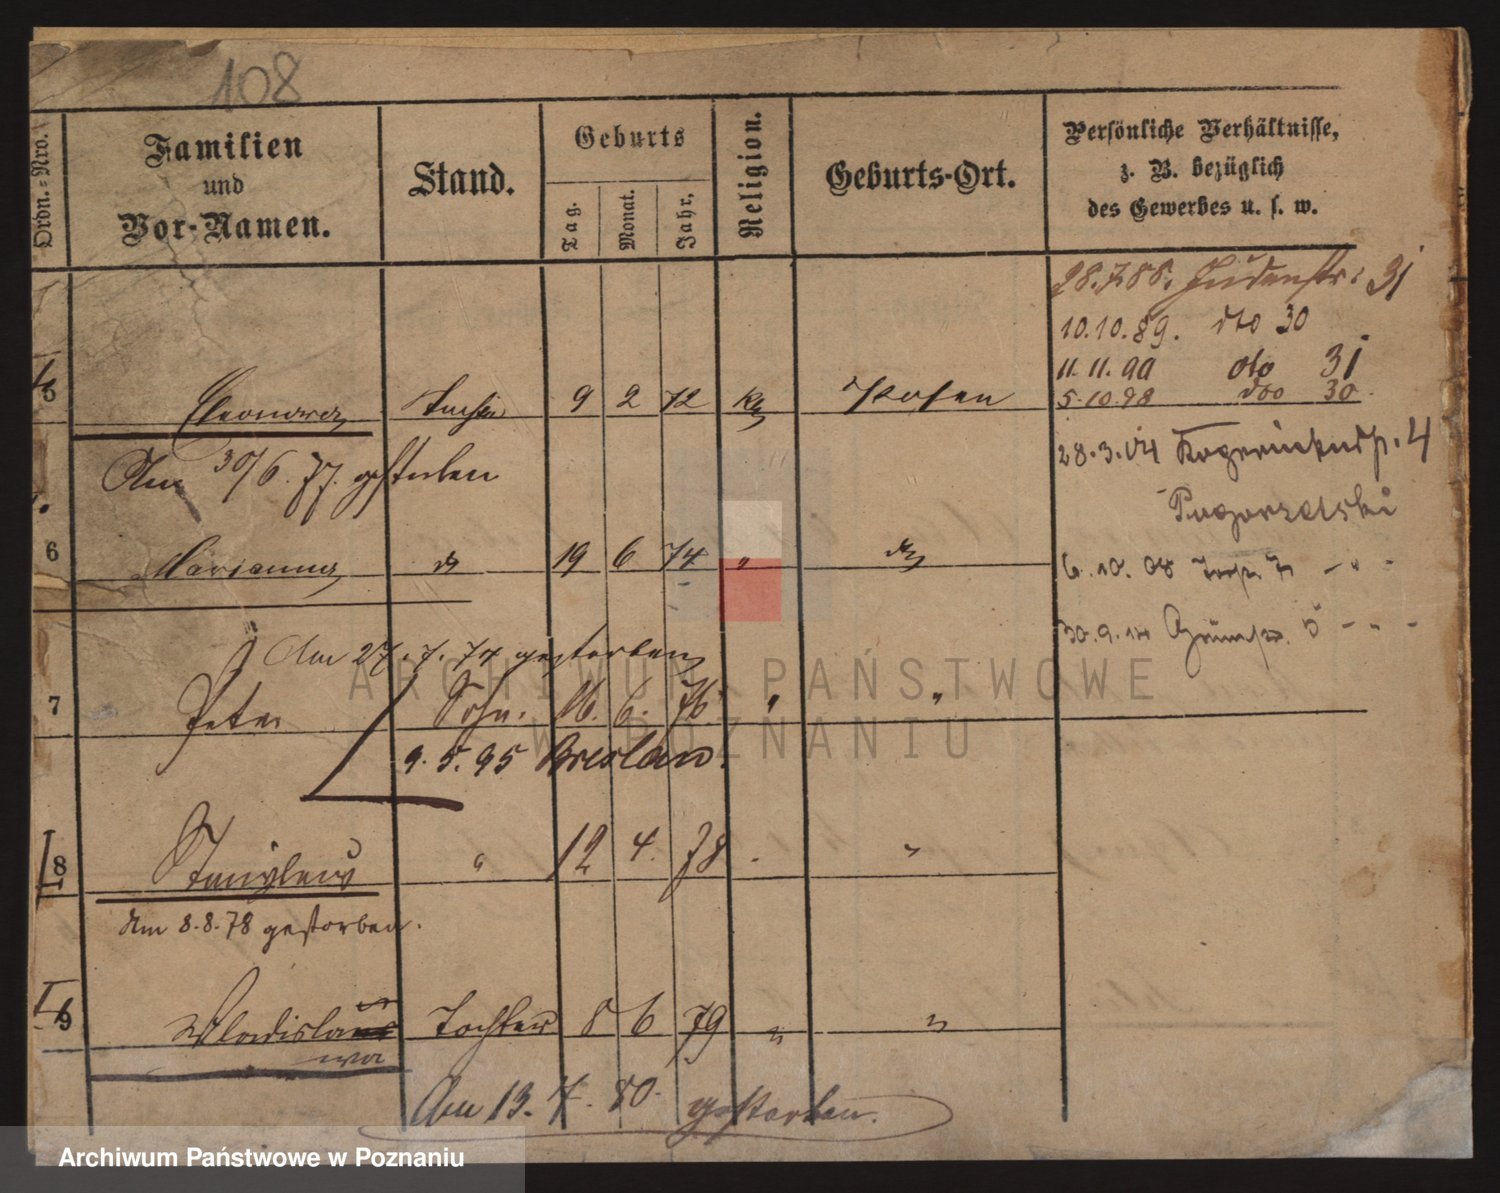 108
Ordn.-Nro.
Familien und Vor-Namen.
Stand.
Geburts
Tag.
Monat.
Jahr.
Religion.
Geburts-Ort.
Persönliche Verhältnisse,
z. B. bezüglich
des Gewerbes u. s. w.
28.7.88. Judenstr. 31
10.10.89. dto 30
11.11.90 dto 31
5.10.98 dto 30
5 Eleonora Tochter 9 2 72 Posen
Am 30/6. 77. gestorben
28.3.04 4
6 Marianna 19 6 74 "
6.10.08 " "
Am 27.7.74 gestorben
30.9.14 " "
7 Peter Sohn. 16. 6. 76 " "
9.5.95 Breslau.
I 8 Stanislaus " 12 4. 78 "
Am 8.8.78 gestorben.
I 9 Wladislawa Tochter 8 6 79 " "
Am 13. 7. 80. gestorben.
ARCHIWUM PAŃSTWOWE
W POZNANIU
Archiwum Państwowe w Poznaniu